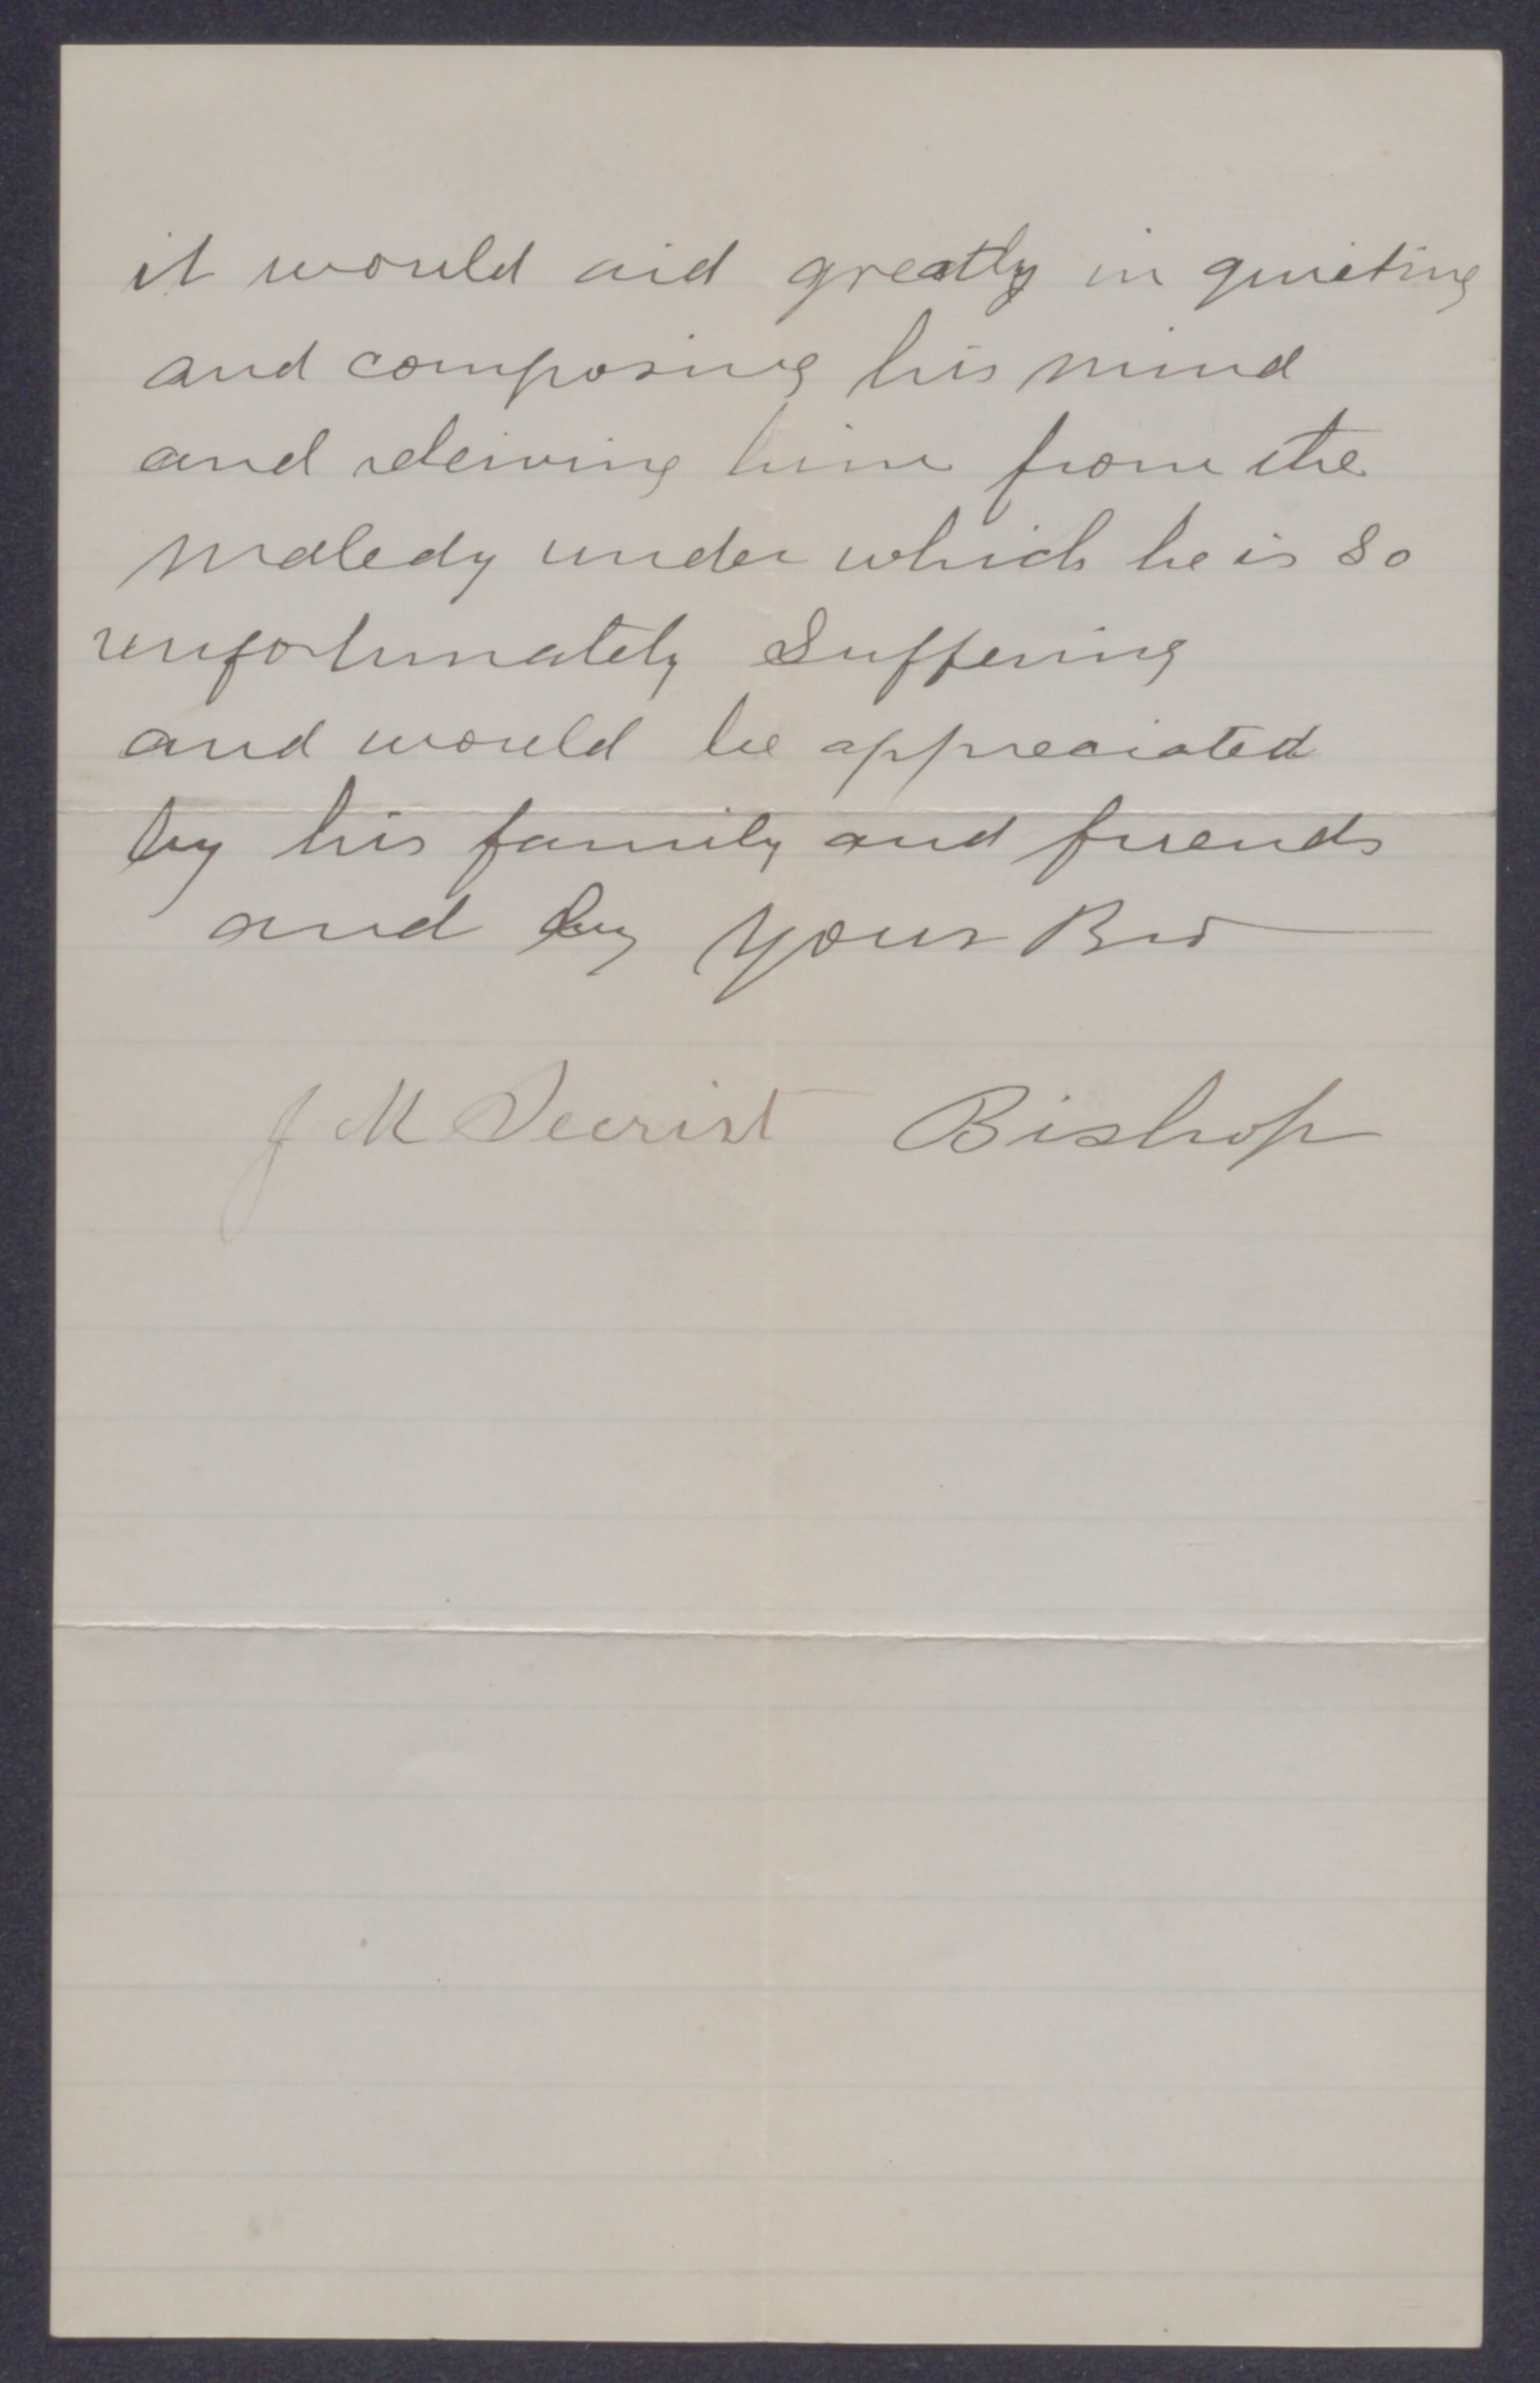 it would aid greatly in quieting
and composing his mind
and releiving him from the
maledy under which he is so
unfortunately Suffering
and would be appreciated
by his family and friends
and by your Bro
J M Secrist Bishop